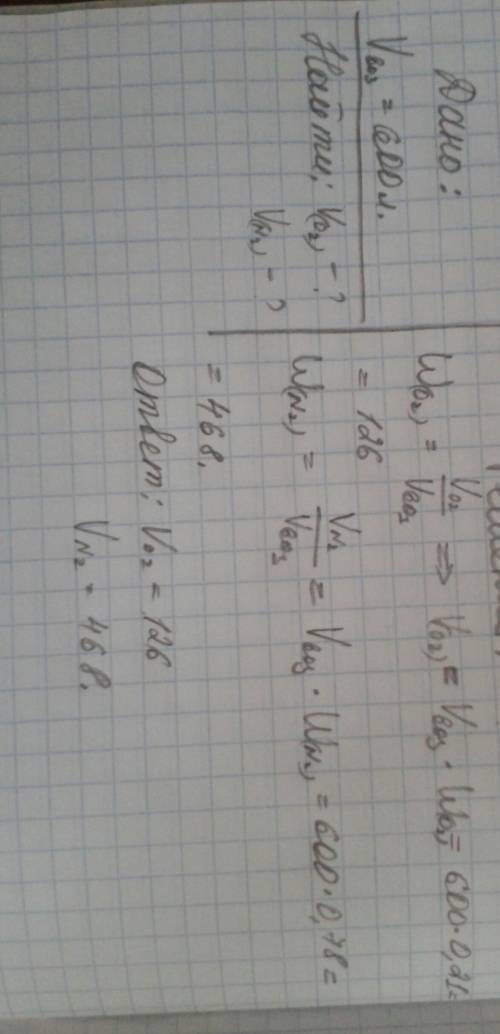 Дано:
Vвоз = 600л.
Найти: V(O2) - ?
V(N2) - ?
W(O2) = VO2/Vвоз => V(O2) = Vвоз · W(O2) = 600·0,21=
= 126
W(N2) = VN2/Vвоз = Vвоз · W(N2) = 600·0,78=
= 468.
Ответ: VO2 = 126
VN2 = 468.